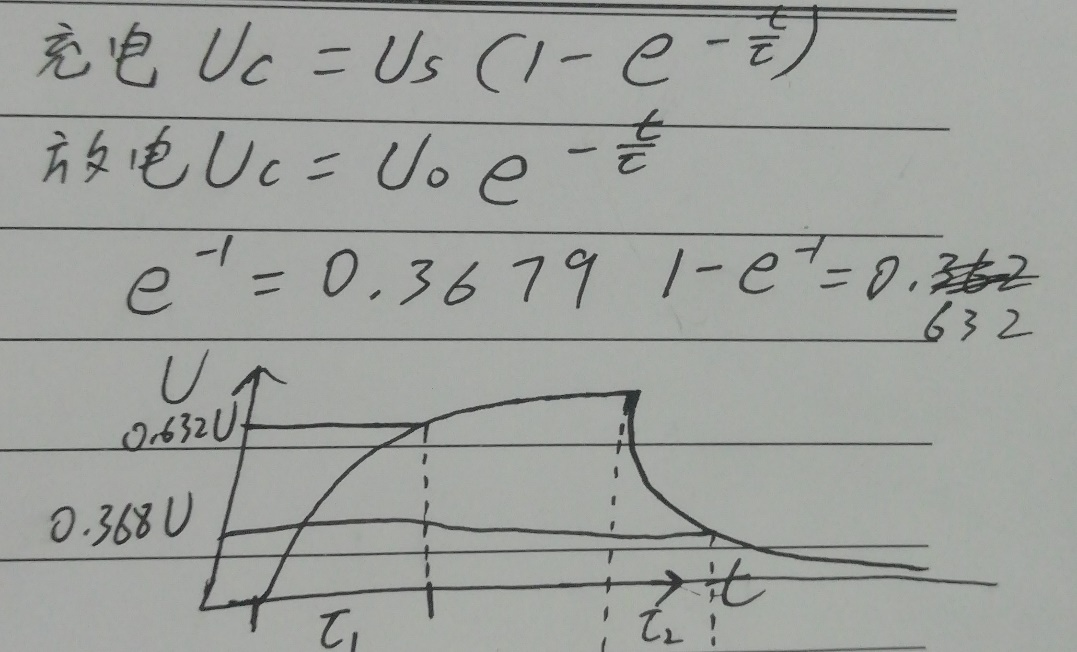 充电 Uc = Us (1 - e^{-\frac{t}{τ}})
放电 Uc = U₀ e^{-\frac{t}{τ}}
e⁻¹ = 0.3679 1 - e⁻¹ = 0.632
U
0.632U
0.368U
t
τ₁ τ₂